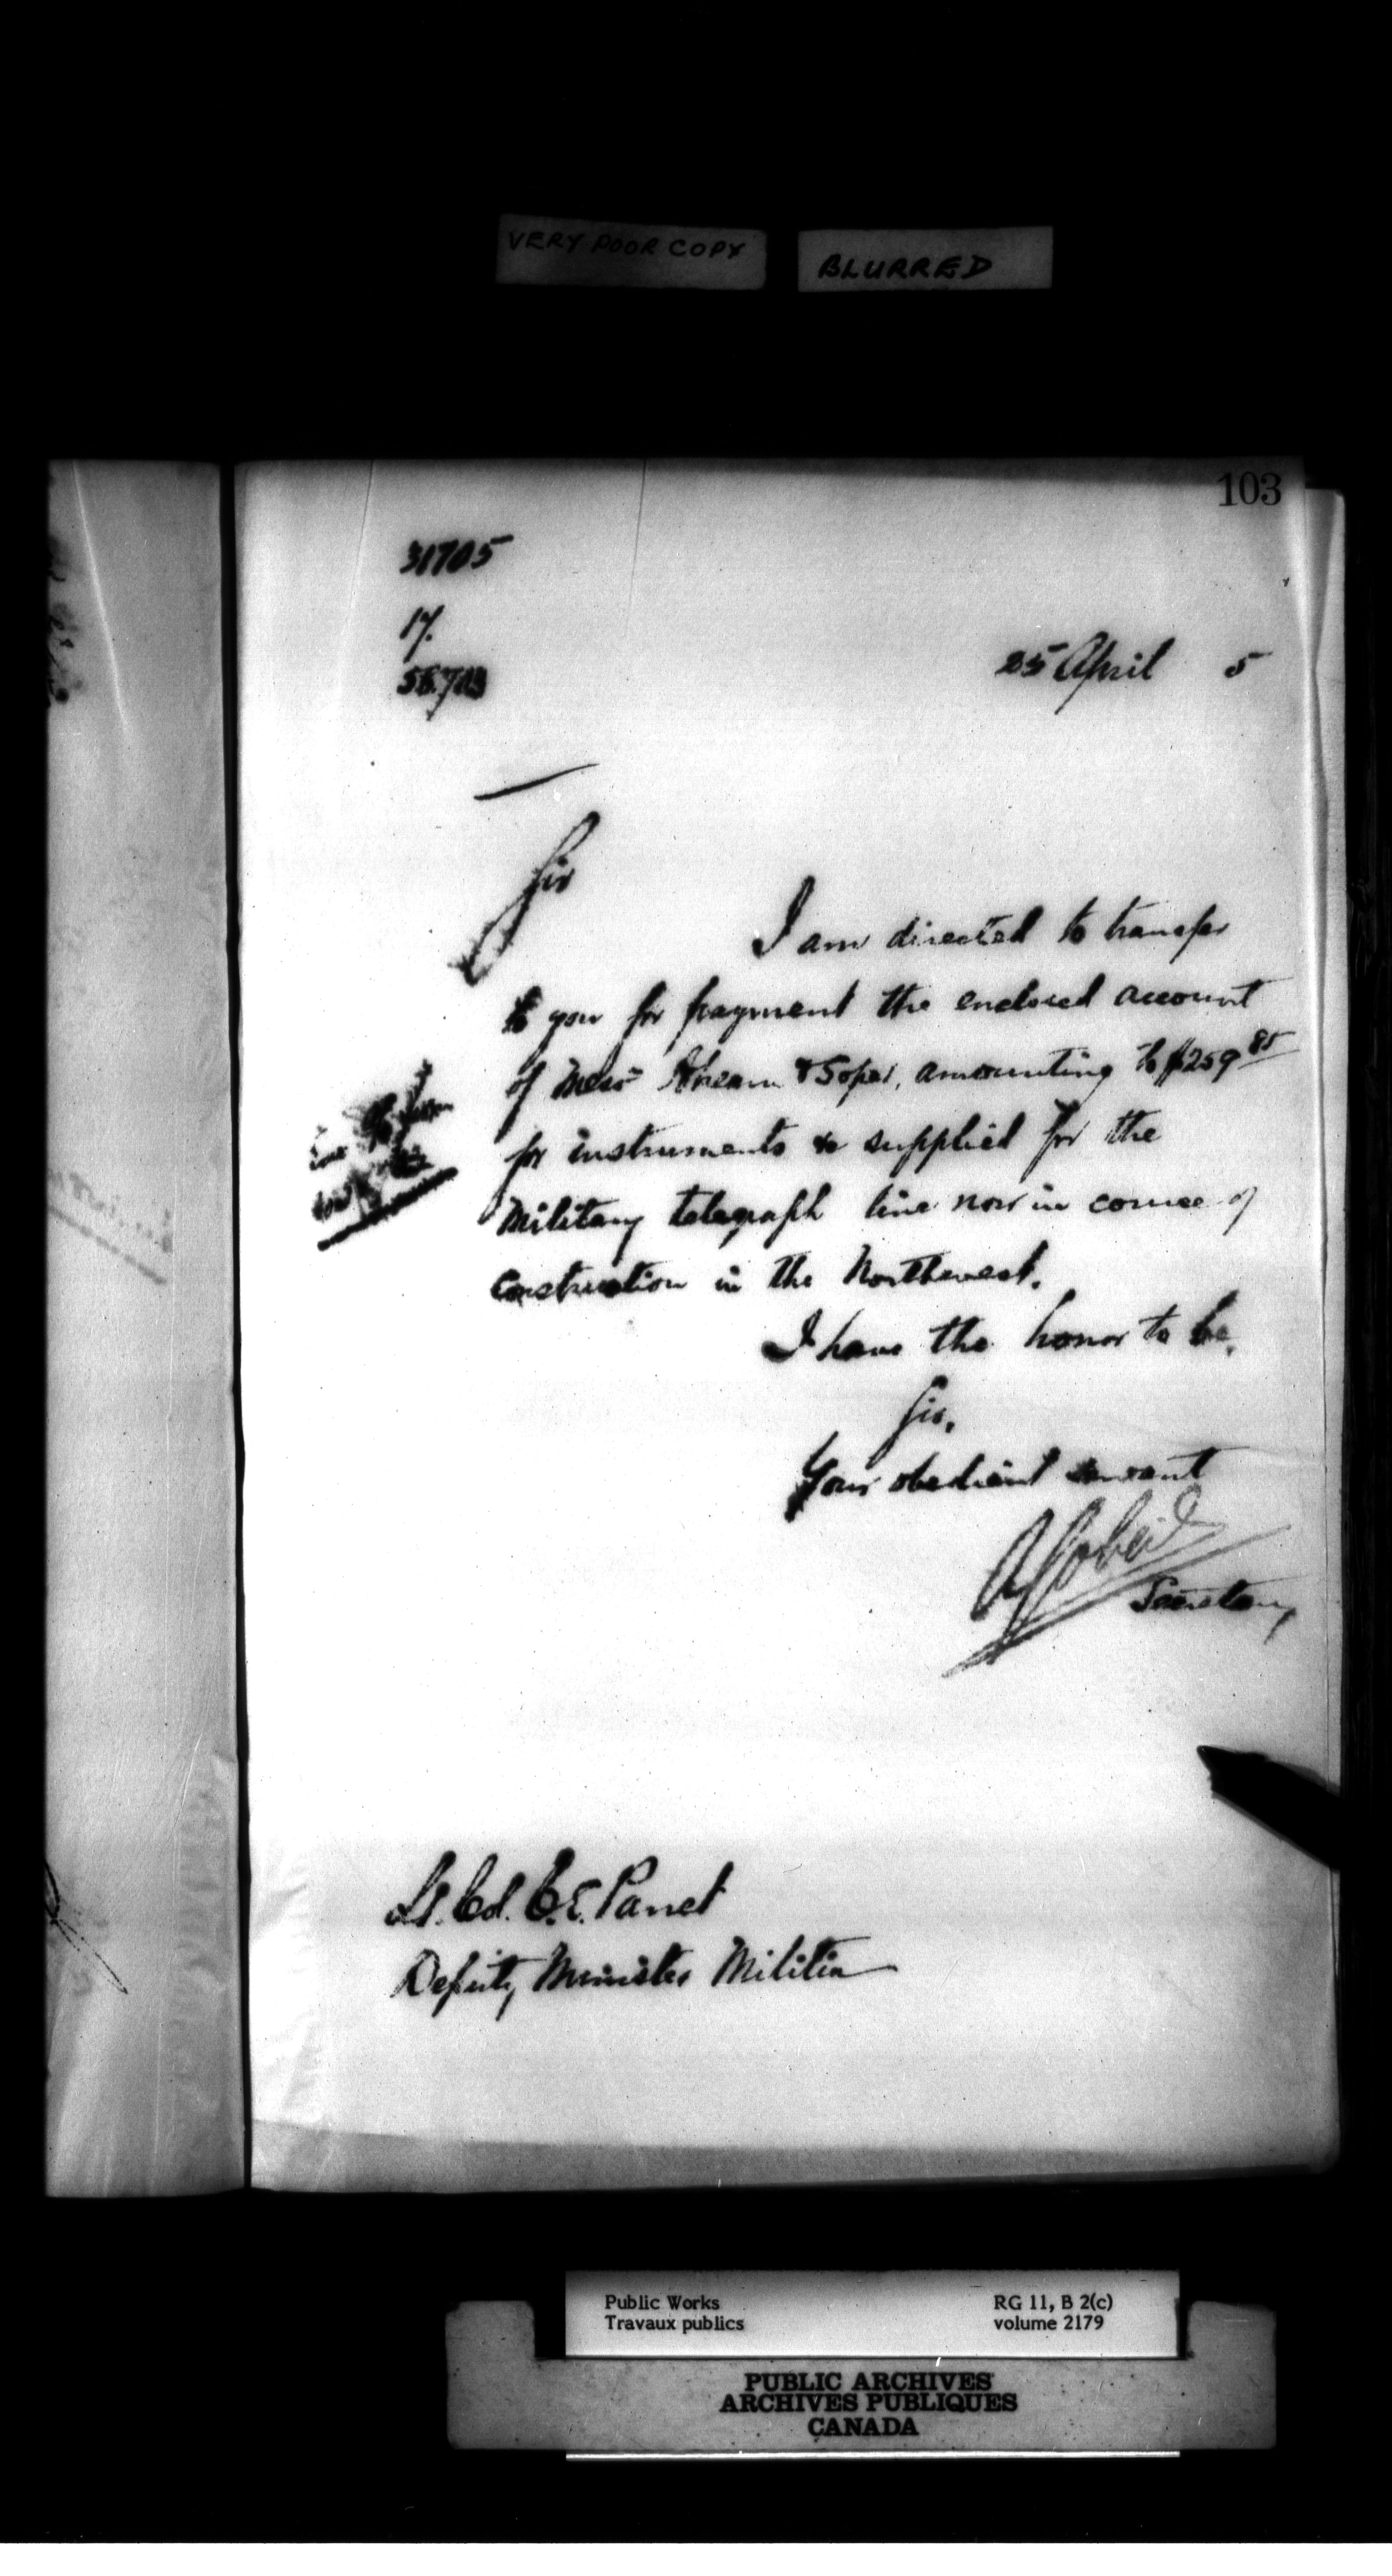 VERY POOR COPY
BLURRED
103
31705
17.
25 April 5
Sir
I am directed to transfer
to you for payment the enclosed account
of Mess Ahearn & Soper, amounting to $259 85
for instruments &c supplied for the
Military telegraph line now in course of
Construction in the Northwest.
I have the honor to be,
Sir,
Your obedient servant
A Gobeil
Secretary
Lt. Col. C. E. Panet
Deputy Minister Militia
Public Works
Travaux publics
RG 11, B 2(c)
volume 2179
PUBLIC ARCHIVES
ARCHIVES PUBLIQUES
CANADA